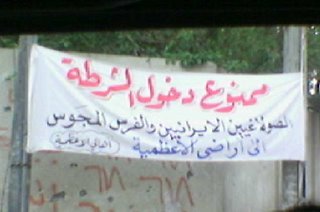 ممنوع دخول الشرطة
الصفويين الايرانيين والفرس المجوس
الى أراضي الأعظمية
أهالي الأعظمية